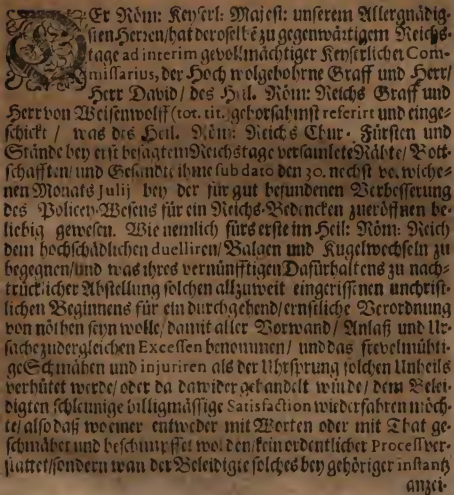 DEr Röm: Keyserl: Majest: unserem Allergnädig-
sten Herren/hat deroselbē zu gegenwärtigem Reichs-
tage ad interim gevollmächtiger Keyserlicher Com-
missarius, der Hoch wolgebohrne Graff und Herr/
Herr David/ des Heil. Röm: Reichs Graff und
Herr von Weissenwolff (tot. tit.) gehorsahmst referirt und einge-
schickt / was des Heil. Röm: Reichs Chur- Fürsten und
Stände bey erst besagtem Reichstage versamlete Rähte/ Bott-
schafften/ und Gesandte ihme sub dato den 30. nechst verwiche-
nen Monats Julij bey der für gut befundenen Verbesserung
des Policey-Wesens für ein Reichs-Bedencken zueröffnen be-
liebig gewesen. Wie nemlich fürs erste im Heil: Röm: Reich
dem hochschädlichen duelliren/ Balgen und Kugelwechseln zu
begegnen/und was ihres vernünfftigen Dafürhaltens zu nach-
trücklicher Abstellung solchen allzuweit eingerissenen unchrist-
lichen Beginnens für ein durchgehend/ ernstliche Verordnung
von nöthen seyn wolle/ damit aller Vorwand/ Anlaß und Ur-
sache zu dergleichen Excessen benommen/ und das frevelmühti-
ge Schmähen und injuriren als der Uhrsprung solchen Unheils
verhütet werde/ oder da dawider gehandelt würde/ dem Belei-
digten schleunige billigmässige Satisfaction wiederfahren möch-
te/ also daß wo einer entweder mit Worten oder mit That ge-
schmähet und beschimpffet worden/ kein ordentlicher Process ver-
stattet/sondern wan der Beleidigte solches bey gehöriger instantz
anzei-